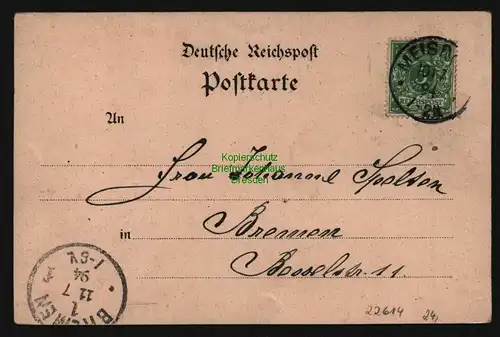 Deutsche Reichspost
Postkarte
MEISS
An
Kopierschutz
Briefmarkenhaus
Dresden
Frau Johanne Spolden
in
Bremen
Besselstr. 11
BREMEN
1
11 7
94
1-2 V
22614 24,